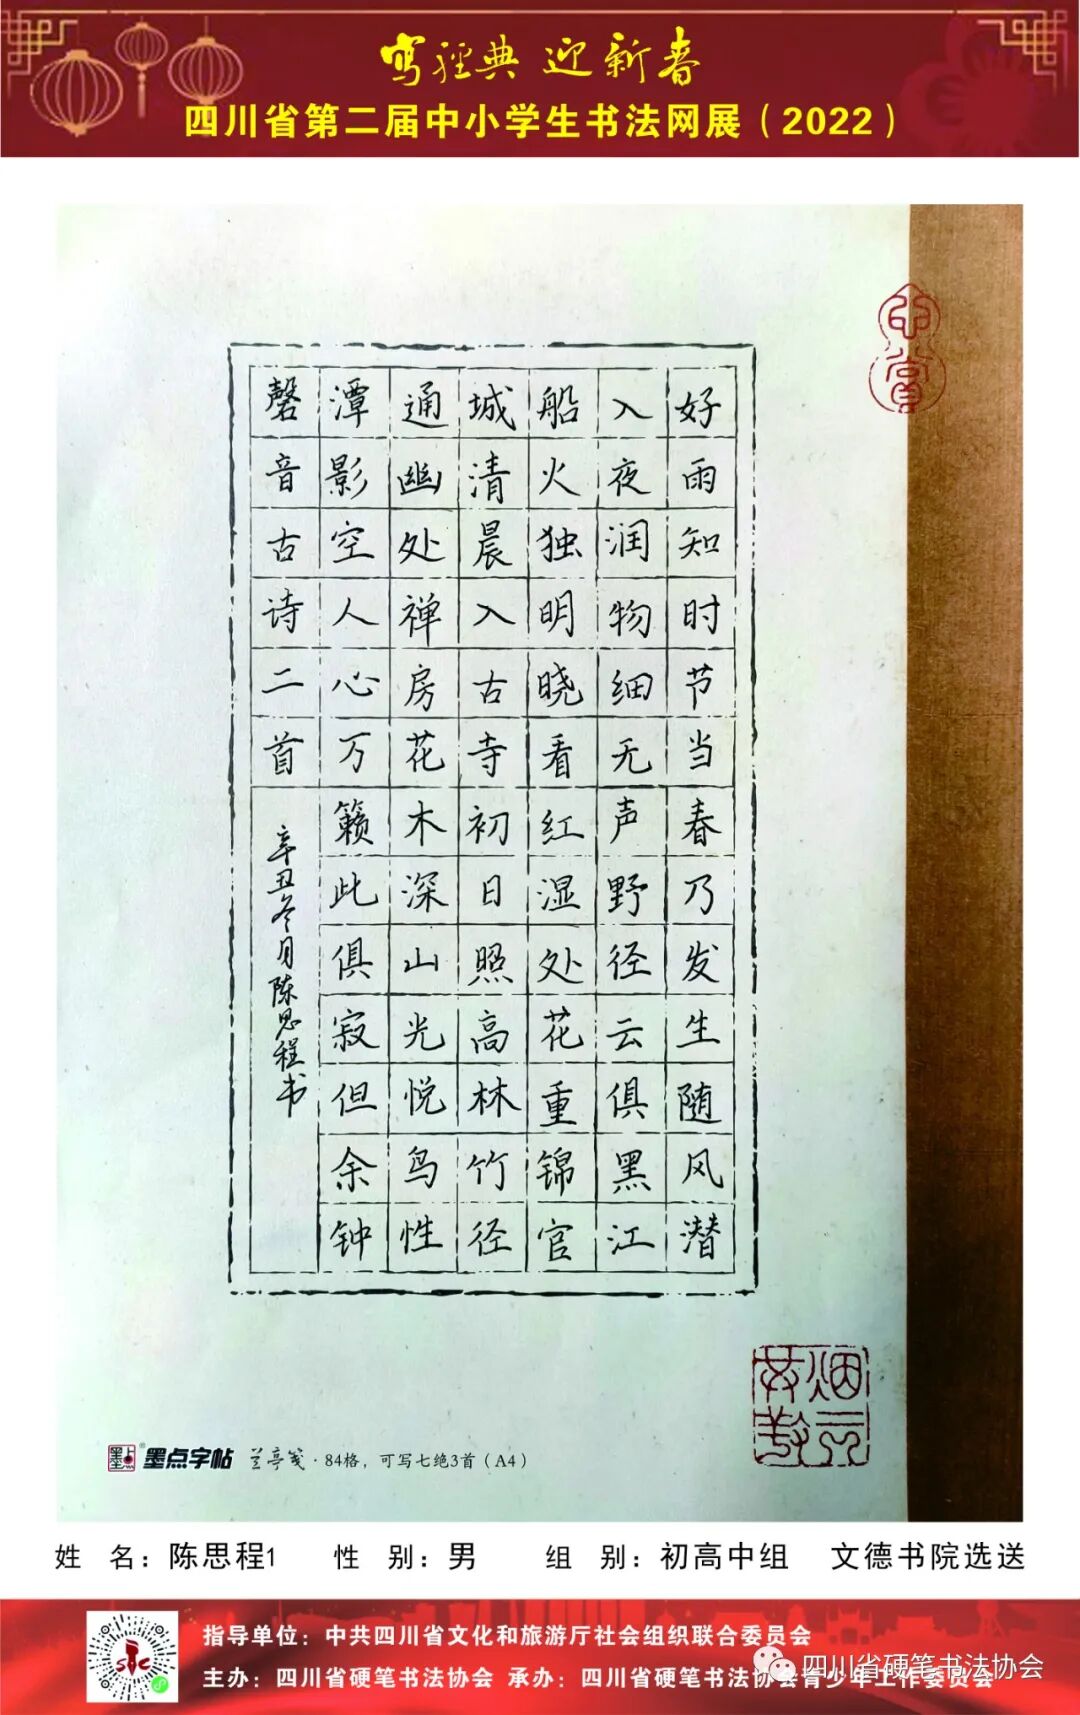 写经典 迎新春
四川省第二届中小学生书法网展（2022）
好雨知时节当春乃发生随风潜
入夜润物细无声野径云俱黑江
船火独明晓看红湿处花重锦官
城清晨入古寺初日照高林竹径
通幽处禅房花木深山光悦鸟性
潭影空人心万籁此俱寂但余钟
磬音古诗二首
辛丑冬月陈思程书
墨点字帖 兰亭笺·84格，可写七绝3首（A4）
姓 名：陈思程1 性 别：男 组 别：初高中组 文德书院选送
指导单位：中共四川省文化和旅游厅社会组织联合委员会
主办：四川省硬笔书法协会 承办：四川省硬笔书法协会青少年工作委员会
四川省硬笔书法协会